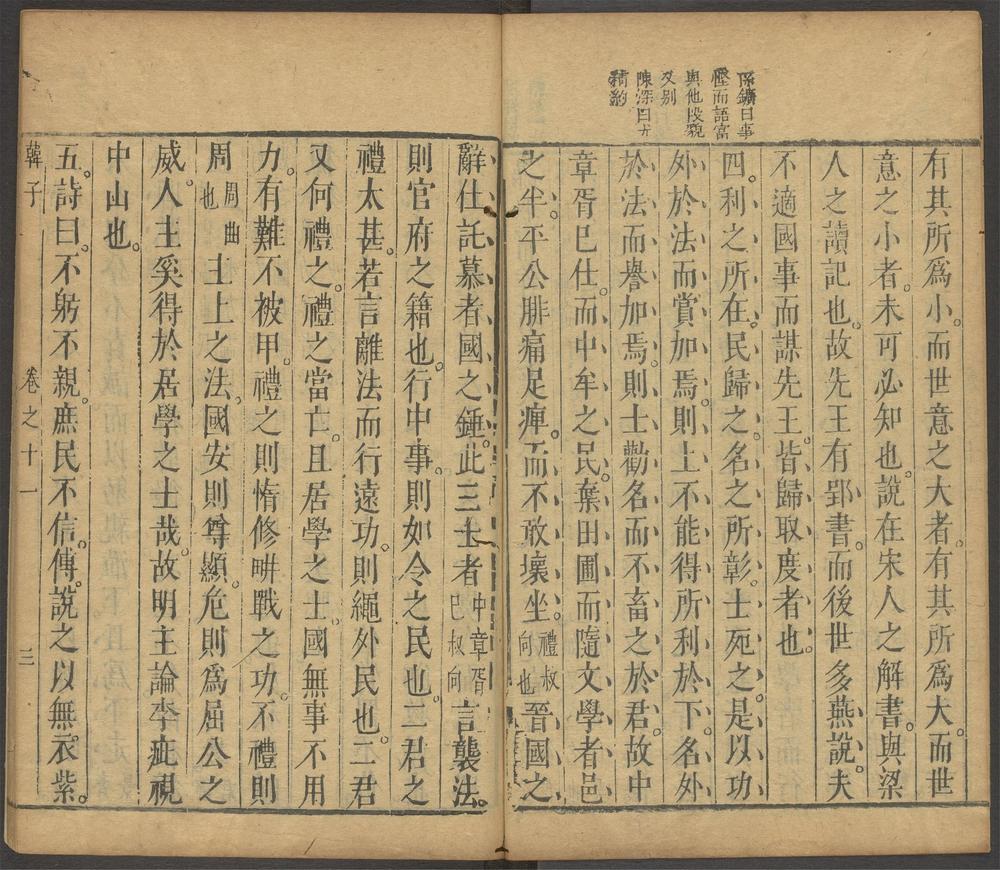 孫鑛曰事
壓而語富
與他段貌
又别
陳深曰尤
精約
有其所爲小而世意之大者有其所爲大而世
意之小者未可必知也說在宋人之解書與梁
人之讀記也故先王有郢書而後世多燕說夫
不適國事而謀先王皆歸取度者也
四利之所在民歸之名之所彰士死之是以功
外於法而賞加焉則上不能得所利於下名外
於法而譽加焉則士勸名而不畜之於君故中
章胥已仕而中牟之民棄田圃而隨文學者邑
之半平公腓痛足痺而不敢壞坐禮叔向也晉國之
辭仕託慕者國之錘此三士者中章胥已叔向言襲法
則官府之籍也行中事則如令之民也二君之
禮太甚若言離法而行遠功則繩外民也二君
又何禮之禮之當亡且居學之士國無事不用
力有難不被甲禮之則惰修畊戰之功不禮則
周周曲也主上之法國安則尊顯危則爲屈公之
威人主奚得於居學之士哉故明主論李疵視
中山也
五詩曰不躬不親庶民不信傳說之以無衣紫
韓子 卷之十一 三